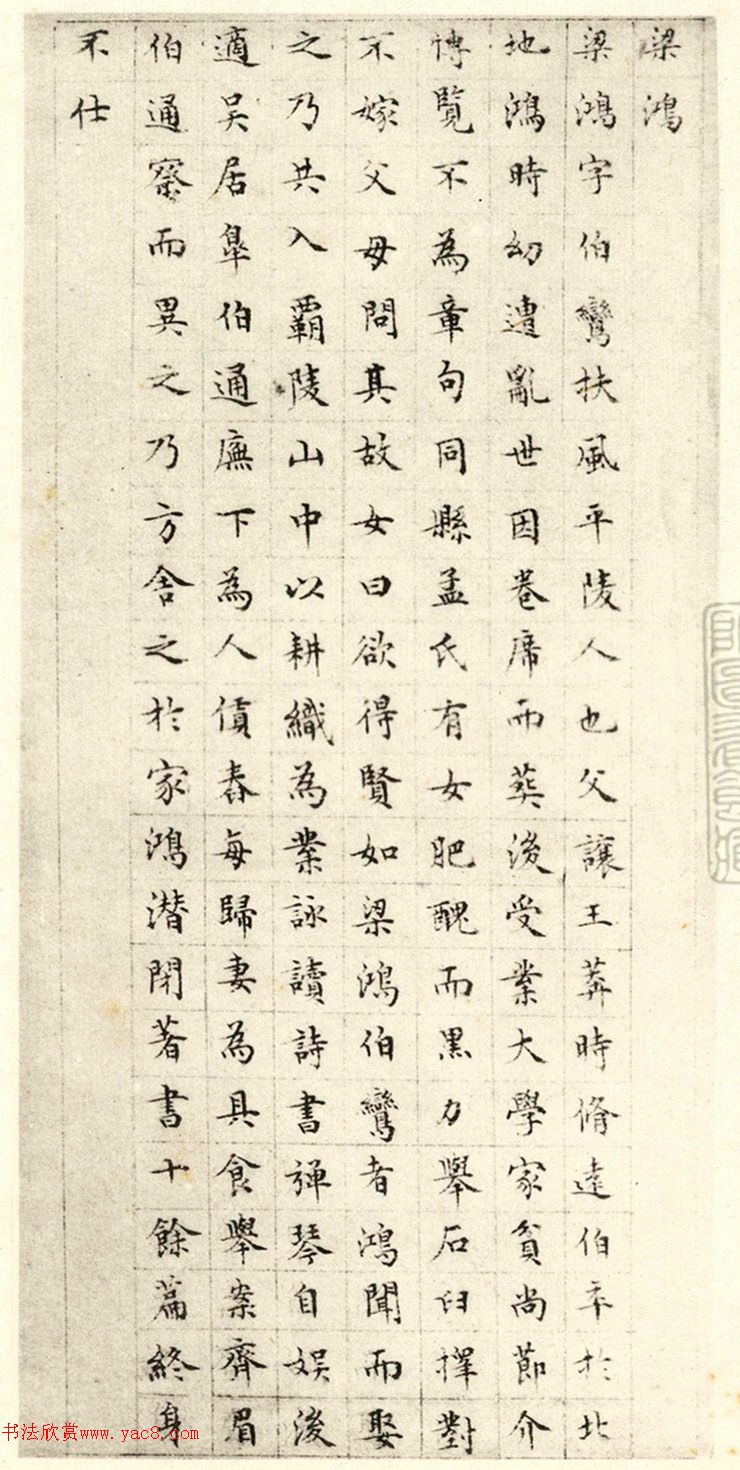 梁鴻
梁鴻字伯鸞扶風平陵人也父讓王莽時脩遠伯卒於北
地鴻時幼遭亂世因卷席而葬後受業大學家貧尚節介
博覽不為章句同縣孟氏有女肥醜而黑力舉石臼擇對
不嫁父母問其故女曰欲得賢如梁鴻伯鸞者鴻聞而娶
之乃共入霸陵山中以耕織為業詠讀詩書彈琴自娛後
適吳居皐伯通廡下為人賃舂每歸妻為具食舉案齊眉
伯通察而異之乃方舍之於家鴻潛閉著書十餘篇終身
不仕
书法欣赏www.yac8.com